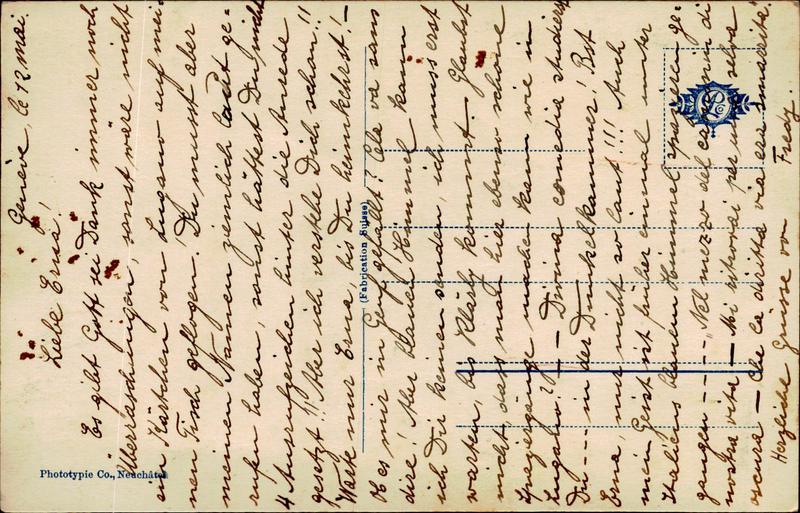 Genève, le 12 mai.
Liebe Erna!
Es gibt Gott sei Dank immer noch
Überraschungen, sonst wäre nicht
ein Kärtchen von Lugano auf mei-
nen Tisch geflogen. Du musst aber
meinen Namen ziemlich laut ge-
rufen haben, sonst hättest Du nicht
4 Ausrufzeichen hinter die Anrede
gesetzt!! Aber ich verstehe Dich schon!!
Warte nur Erna, bis Du heimkehrst!-
Ob es mir in Genf gefällt? Cela va sans
dire! Aber blauen Himmel kann
ich Dir keinen senden, ich muss erst
warten, bis Klärly kommt. - Glaubst
nicht, dass man hier ebenso schöne
Spaziergänge machen kann wie in
Lugano? - Divina comedia studierst
Du ---- in der Dunkelkammer! Pst
Erna, nur nicht so laut!!! Auch
mein Geist ist früher einmal unter
Italiens blauem Himmel spazieren ge-
gangen ---- "Nel mezzo del cammin di
nostra vita - Mi ritrovai per una selva
oscura - Che la diritta via era smarrita."
Herzliche Grüsse von Fredy.
(Fabrication Suisse)
Phototypie Co., Neuchâtel